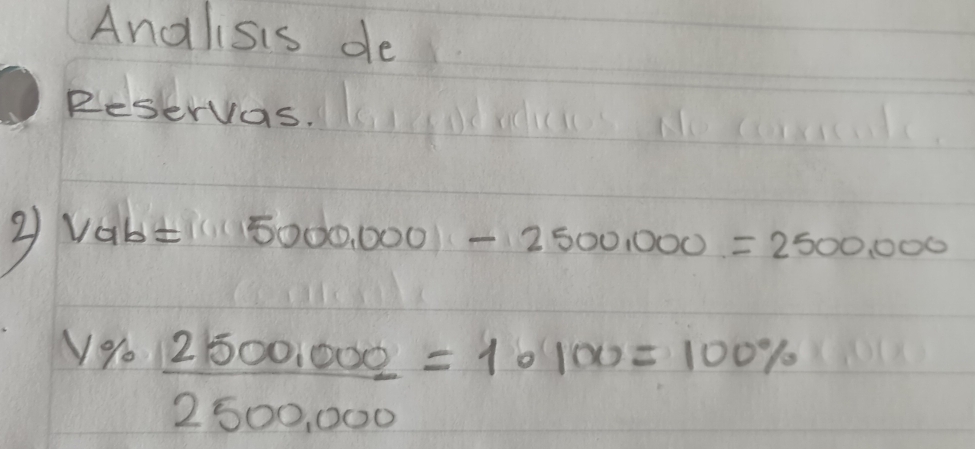 Analisis de
Reservas.
2) Vab= 5000,000 - 2500,000 = 2500,000
V% 2500,000 = 1 o 100 = 100%
2500,000